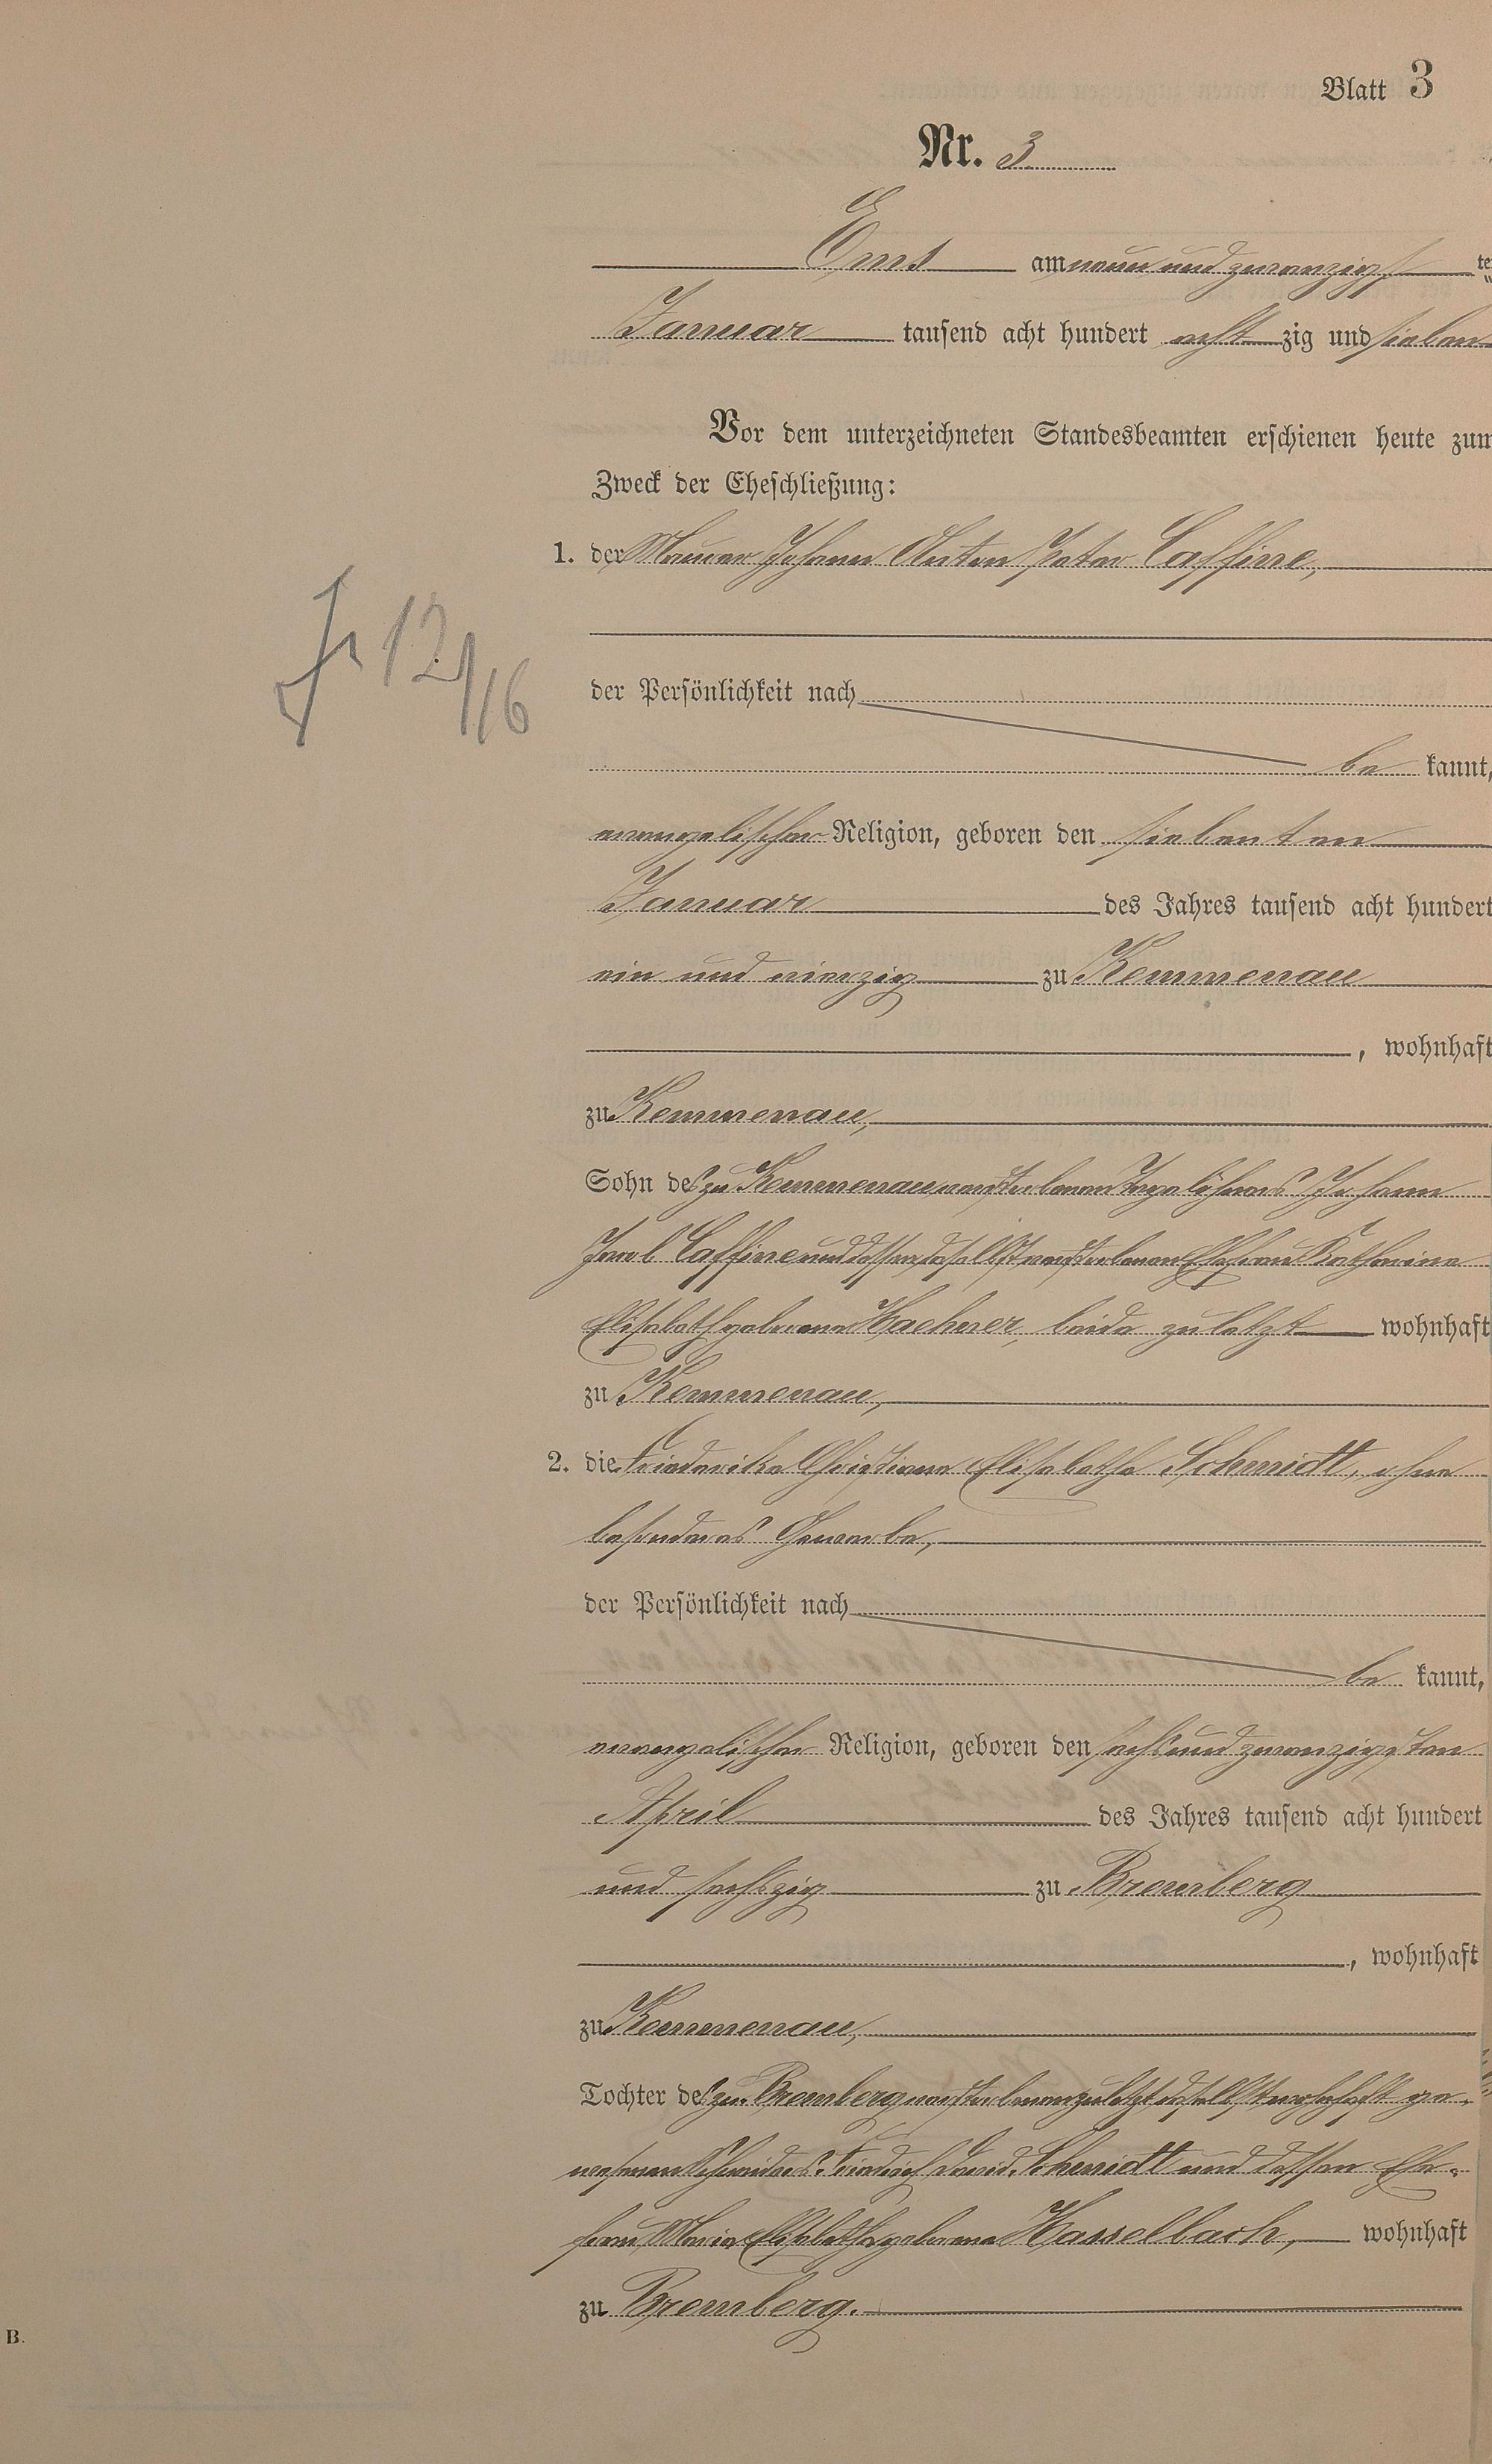 Blatt 3
Nr. 3
Ems am neun und zwanzigsten
Januar tausend acht hundert acht zig und sieben
Vor dem unterzeichneten Standesbeamten erschienen heute zum
Zweck der Eheschließung:
1. der Maurer Johann Anton Peter Caffine,
12/16
der Persönlichkeit nach
be kannt,
evangelischer Religion, geboren den siebenten
Januar des Jahres tausend acht hundert
ein und vierzig zu Kemmenau
, wohnhaft
zu Kemmenau,
Sohn des zu Kemmenau verstorbenen Tagelöhners Johann
Jacob Caffine und dessen daselbst verstorbenen Ehefrau Katharina
Elisabeth geborene Hachner, beide zuletzt wohnhaft
zu Kemmenau,
2. die Friederike Christiane Elisabetha Schmidt, ohne
besonderes Gewerbe,
der Persönlichkeit nach
be kannt,
evangelischer Religion, geboren den sechs und zwanzigsten
April des Jahres tausend acht hundert
und sechszig zu Bremberg
, wohnhaft
zu Kemmenau,
Tochter des zu Bremberg verstorbenen zuletzt daselbst wohnhaft ge-
wesenen Schneiders Friedrich David Schmidt und dessen Ehe-
frau Maria Elisabetha geborene Hasselbach, wohnhaft
zu Bremberg.
B.